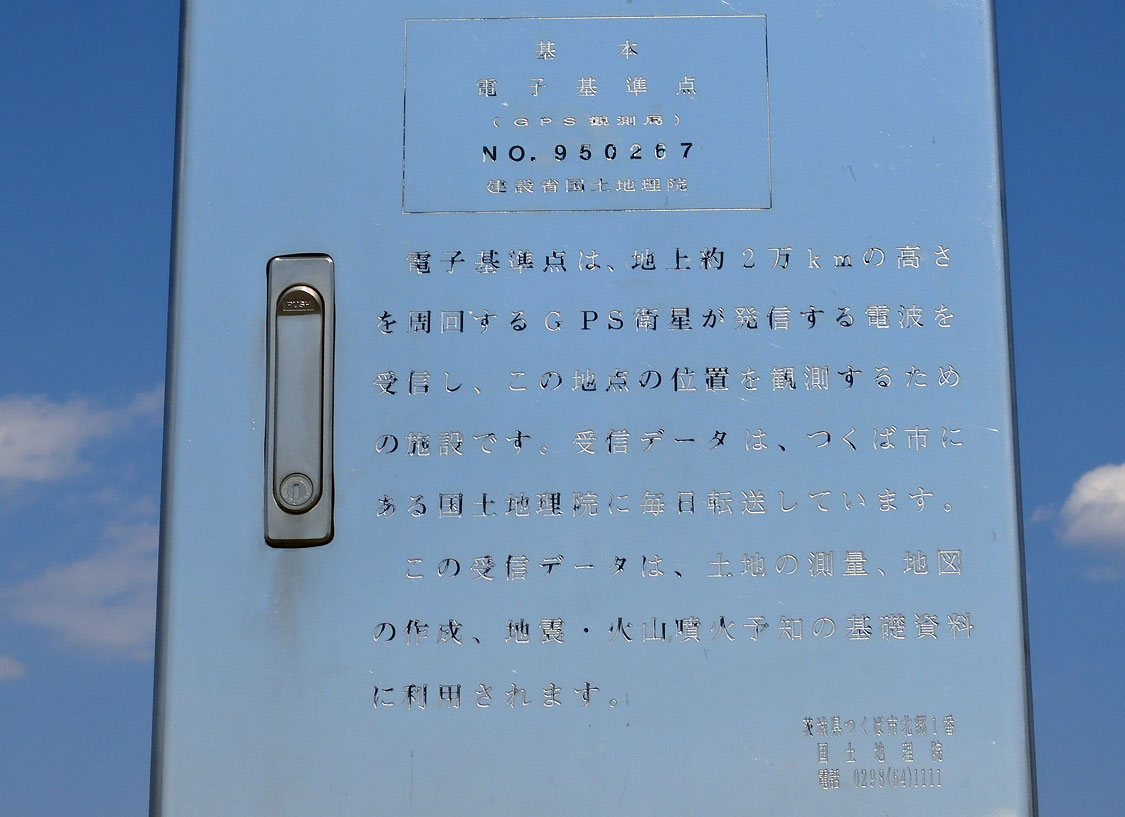 基本
電子基準点
(GPS観測局)
NO.950267
建設省国土地理院
電子基準点は、地上約2万kmの高さ
を周回するGPS衛星が発信する電波を
受信し、この地点の位置を観測するため
の施設です。受信データは、つくば市に
ある国土地理院に毎日転送しています。
この受信データは、土地の測量、地図
の作成、地震・火山噴火予知の基礎資料
に利用されます。
PUSH
茨城県つくば市北郷1番
国土地理院
電話 0298(64)1111